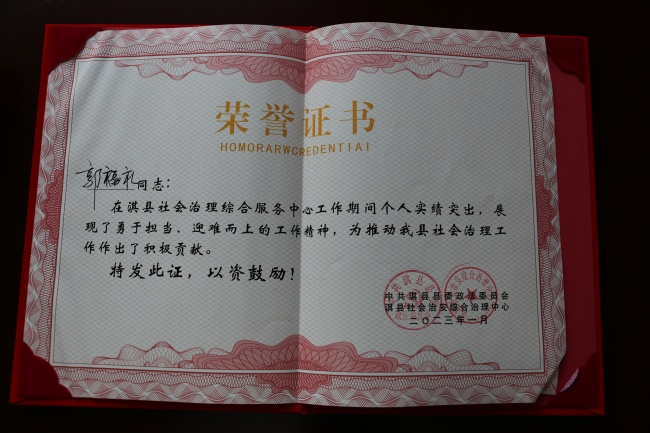 荣誉证书
HOMORARWCREDENTIAI
郭福礼同志：
在淇县社会治理综合服务中心工作期间个人实绩突出，展
现了勇于担当、迎难而上的工作精神，为推动我县社会治理工
作作出了积极贡献。
特发此证，以资鼓励！
中共淇县县委政法委员会
淇县社会治安综合治理中心
二〇二三年一月